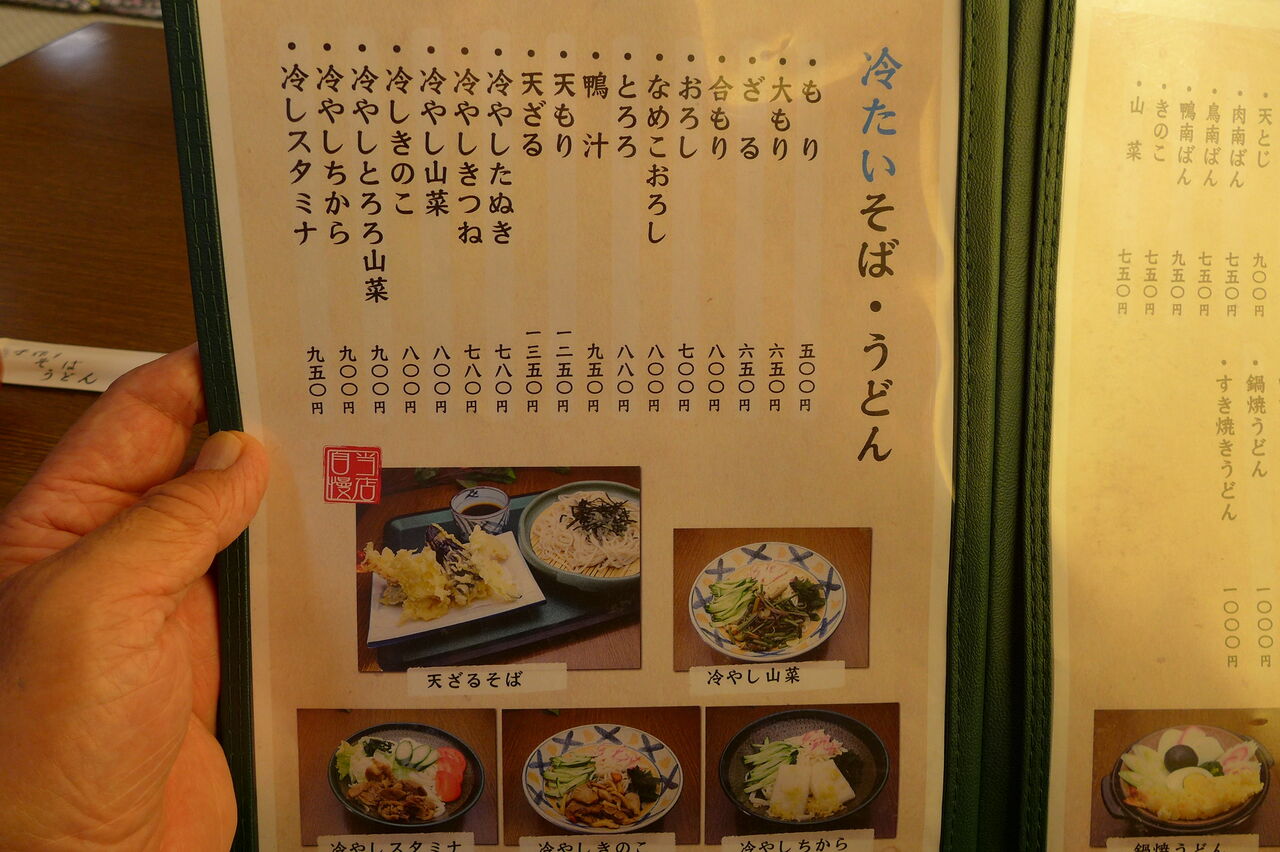 冷たいそば・うどん
・もり 五〇〇円
・大もり 六五〇円
・ざる 六五〇円
・合もり 八〇〇円
・おろし 七〇〇円
・なめこおろし 八〇〇円
・とろろ 八八〇円
・鴨汁 九五〇円
・天もり 一二五〇円
・天ざる 一三五〇円
・冷やしたぬき 七八〇円
・冷やしきつね 七八〇円
・冷やし山菜 八〇〇円
・冷しきのこ 八〇〇円
・冷やしとろろ山菜 九〇〇円
・冷やしちから 九〇〇円
・冷しスタミナ 九五〇円
当店自慢
天ざるそば
冷やし山菜
冷やしスタミナ
冷やしきのこ
冷やしちから
・天とじ 九〇〇円
・肉南ばん 七五〇円
・鳥南ばん 七五〇円
・鴨南ばん 九五〇円
・きのこ 七五〇円
・山菜 七五〇円
・鍋焼うどん 一〇〇〇円
・すき焼きうどん 一〇〇〇円
鍋焼うどん
そば
うどん